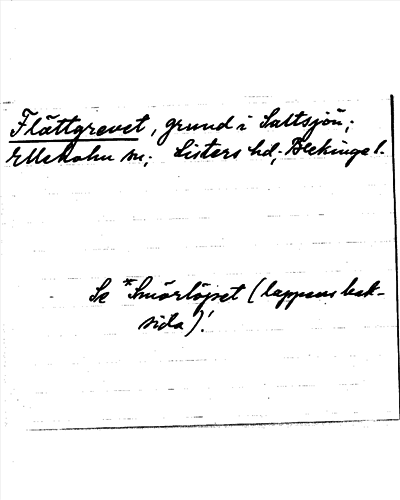 Flättgrevet, grund i Saltsjön;
Ellekohn sn; Listers hd; Blekinge l.
Se *Smörlöpet (lappens bak-
sida)!